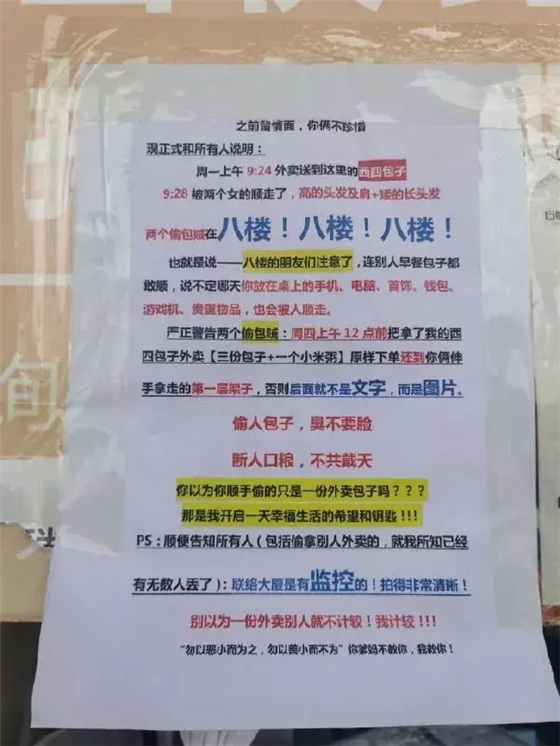 之前留情面，你俩不珍惜
现正式和所有人说明：
周一上午 9:24 外卖送到这里的西四包子
9:28 被两个女的顺走了，高的头发及肩+矮的长头发
两个偷包贼在八楼！八楼！八楼！
也就是说——八楼的朋友们注意了，连别人早餐包子都
敢顺，说不定哪天你放在桌上的手机、电脑、首饰、钱包、
游戏机、贵重物品，也会被人顺走。
严正警告两个偷包贼：周四上午 12 点前把拿了我的西
四包子外卖【三份包子+一个小米粥】原样下单还到你俩伸
手拿走的第一层架子，否则后面就不是文字，而是图片。
偷人包子，臭不要脸
断人口粮，不共戴天
你以为你顺手偷的只是一份外卖包子吗？？？
那是我开启一天幸福生活的希望和钥匙!!!
PS：顺便告知所有人（包括偷拿别人外卖的，就我所知已经
有无数人丢了）：联络大厦是有监控的！拍得非常清晰！
别以为一份外卖别人就不计较！我计较!!!
“勿以恶小而为之，勿以善小而不为”你爹妈不教你，我教你！
旬